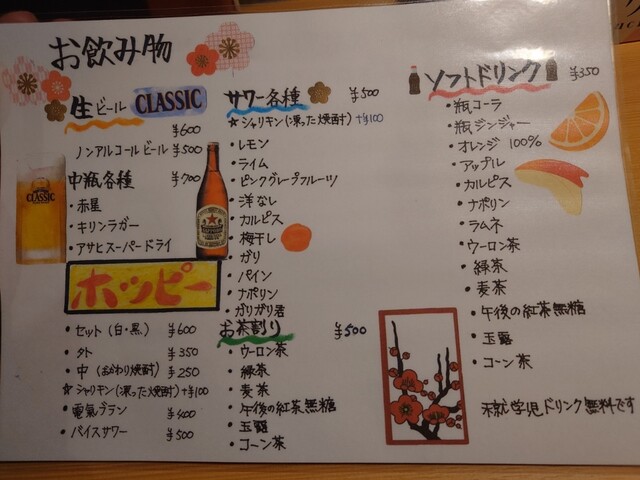 お飲み物
生ビール CLASSIC
¥600
ノンアルコールビール ¥500
中瓶各種 ¥700
・赤星
・キリンラガー
・アサヒスーパードライ
CLASSIC
ホッピー
・セット(白・黒) ¥600
・外 ¥350
・中(おかわり焼酎) ¥250
☆シャリキン(凍った焼酎)+¥100
・電氣ブラン ¥400
・バイスサワー ¥500
サワー各種 ¥500
★シャリキン(凍った焼酎)+¥100
・レモン
・ライム
・ピンクグレープフルーツ
・洋なし
・カルピス
・梅干し
・ガリ
・パイン
・ナポリン
・ガリガリ君
お茶割り ¥500
・ウーロン茶
・緑茶
・麦茶
・午後の紅茶無糖
・玉露
・コーン茶
ソフトドリンク ¥350
・瓶コーラ
・瓶ジンジャー
・オレンジ 100%
・アップル
・カルピス
・ナポリン
・ラムネ
・ウーロン茶
・緑茶
・麦茶
・午後の紅茶無糖
・玉露
・コーン茶
不就学児ドリンク無料です